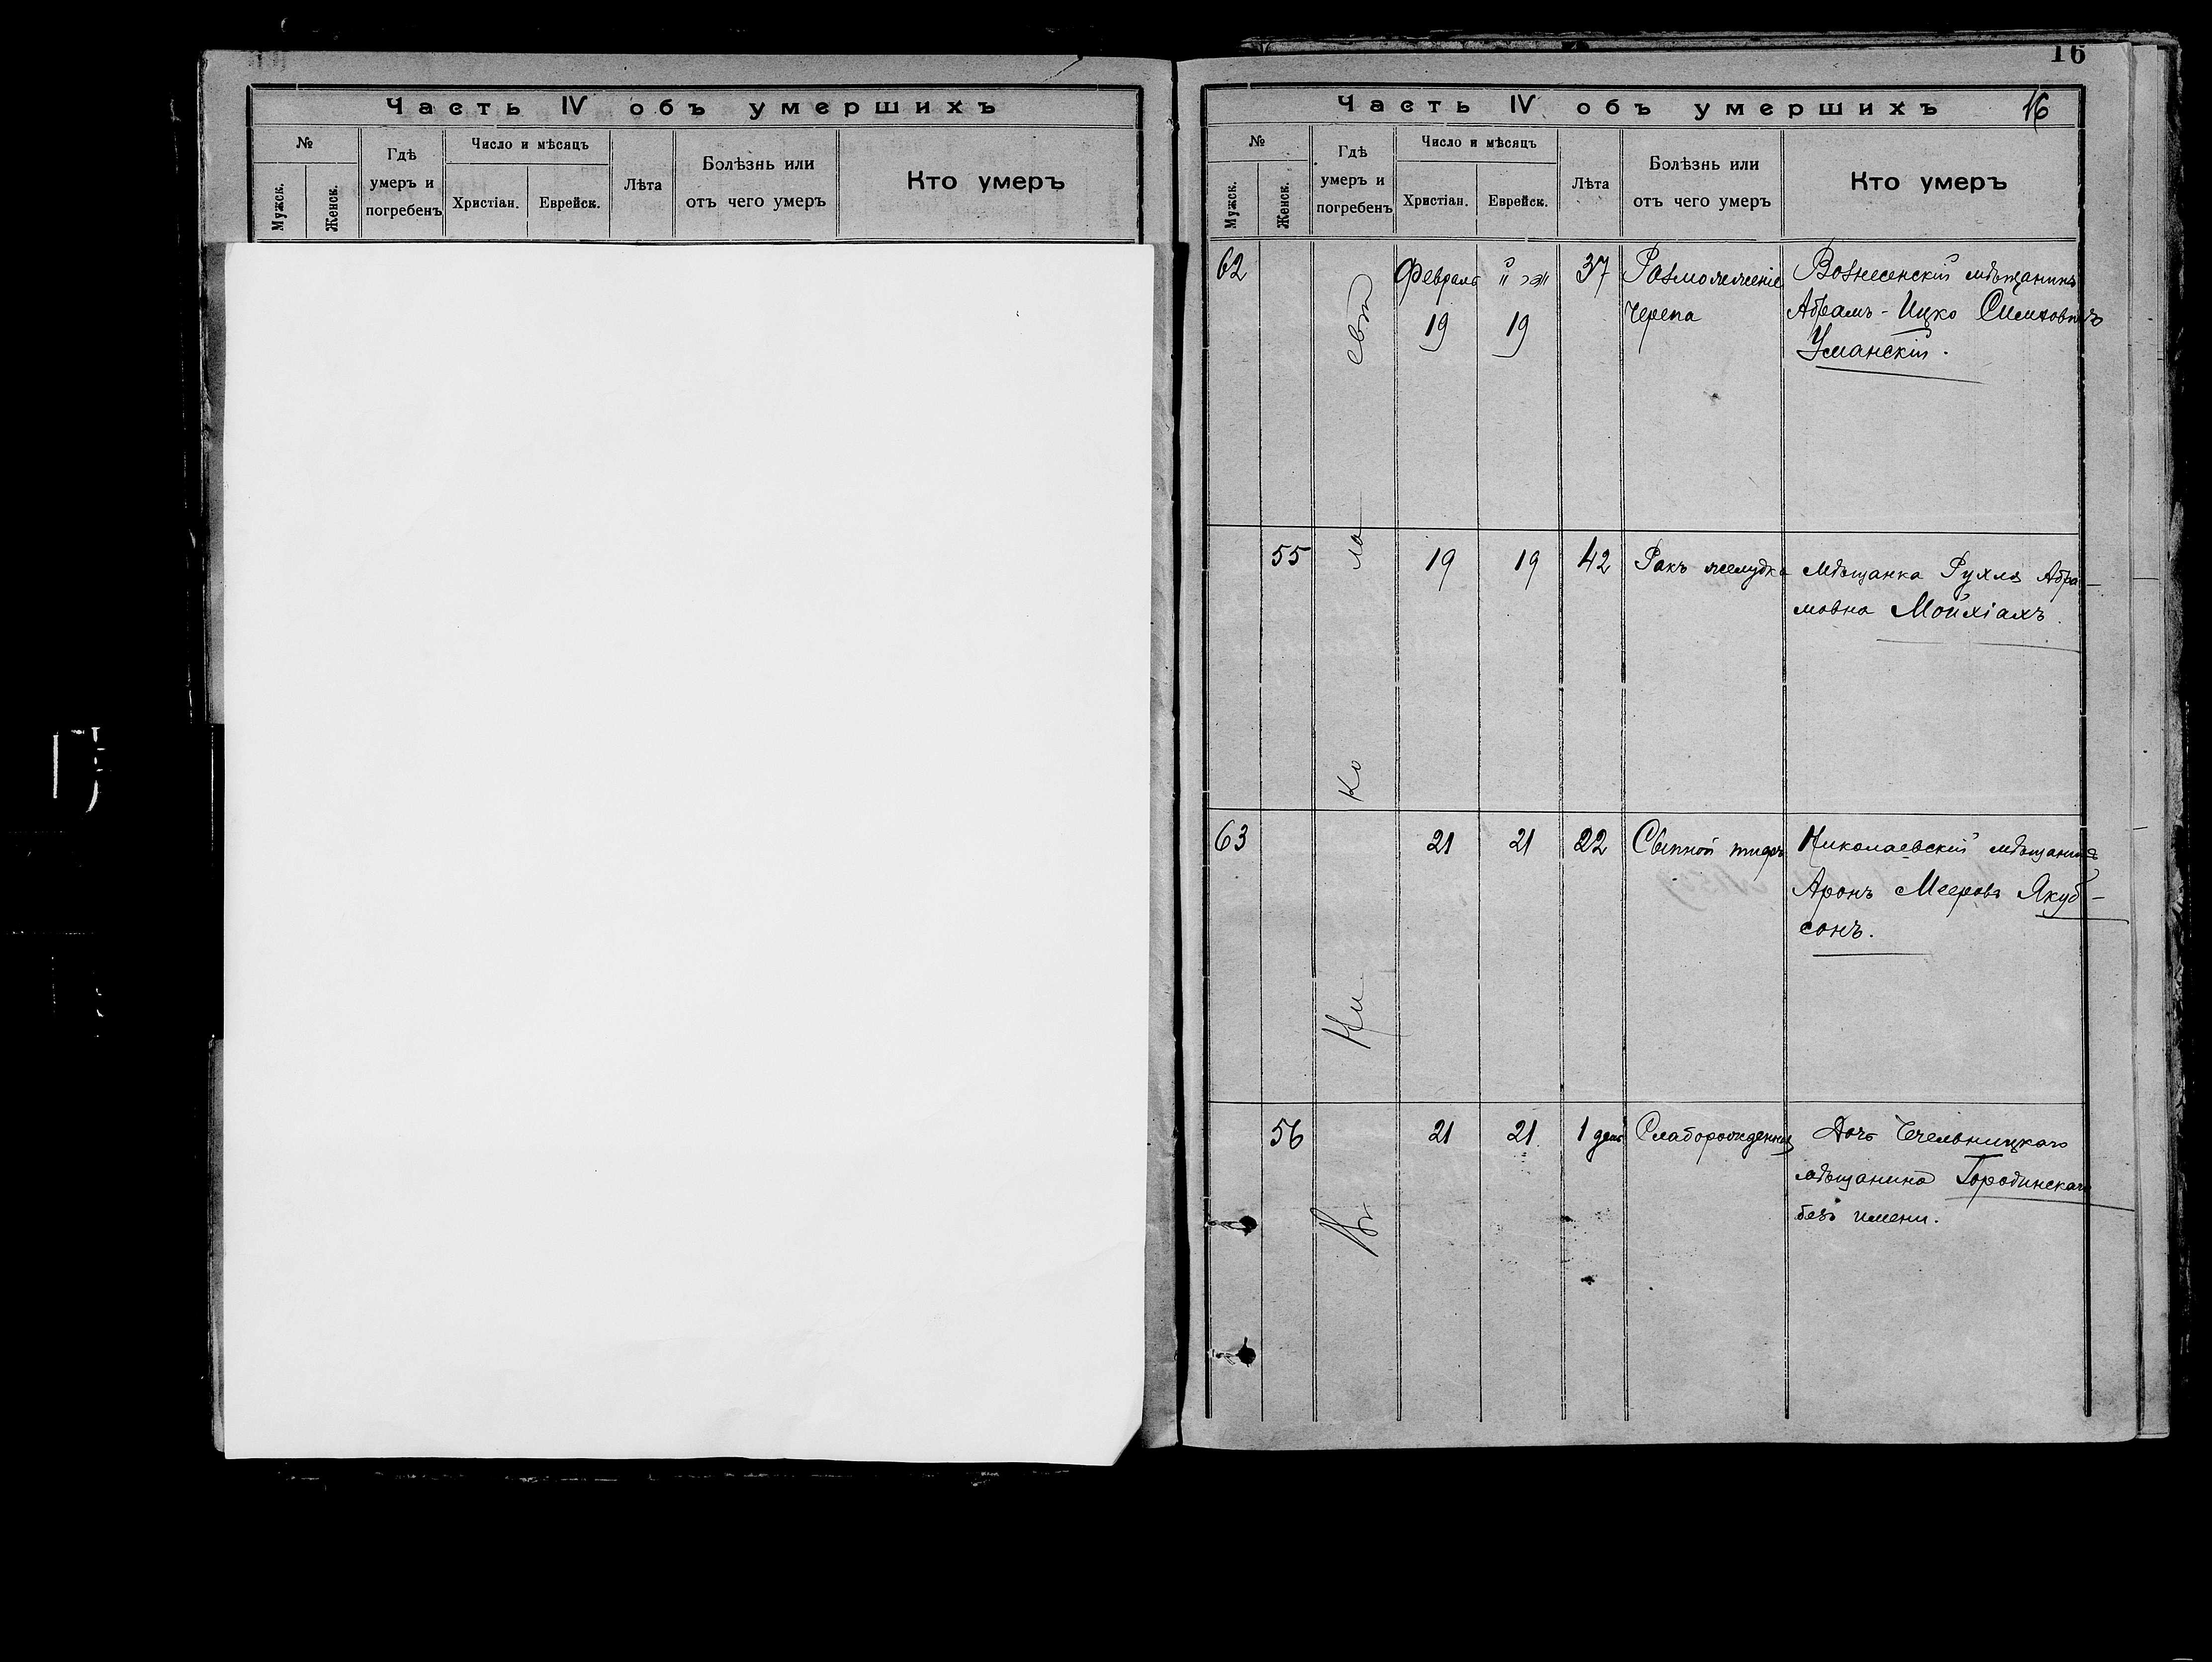 Часть IV объ умершихъ
№
Мужск.
Женск.
Гдѣ
умеръ и
погребенъ
Число и мѣсяцъ
Христіан.
Еврейск.
Лѣта
Болѣзнь или
отъ чего умеръ
Кто умеръ
16
Часть IV объ умершихъ 16
№
Мужск.
Женск.
Гдѣ
умеръ и
погребенъ
Число и мѣсяцъ
Христіан.
Еврейск.
Лѣта
Болѣзнь или
отъ чего умеръ
Кто умеръ
Въ Ни ко ла евѣ
62
Февраль
19
19
37
Размозженіе
черепа
Вознесенскій мѣщанинъ
Абрамъ-Ицко Симховичъ
Уманскій.
55
19
19
42
Ракъ желудка
Мѣщанка Рухля Абра-
мовна
63
21
21
22
Сыпной тифъ
Николаевскій мѣщанинъ
Аронъ Мееровъ Якуб-
сонъ.
56
21
21
1 день
Дочь Чечельницкаго
мѣщанина Городинскаго
безъ имени.